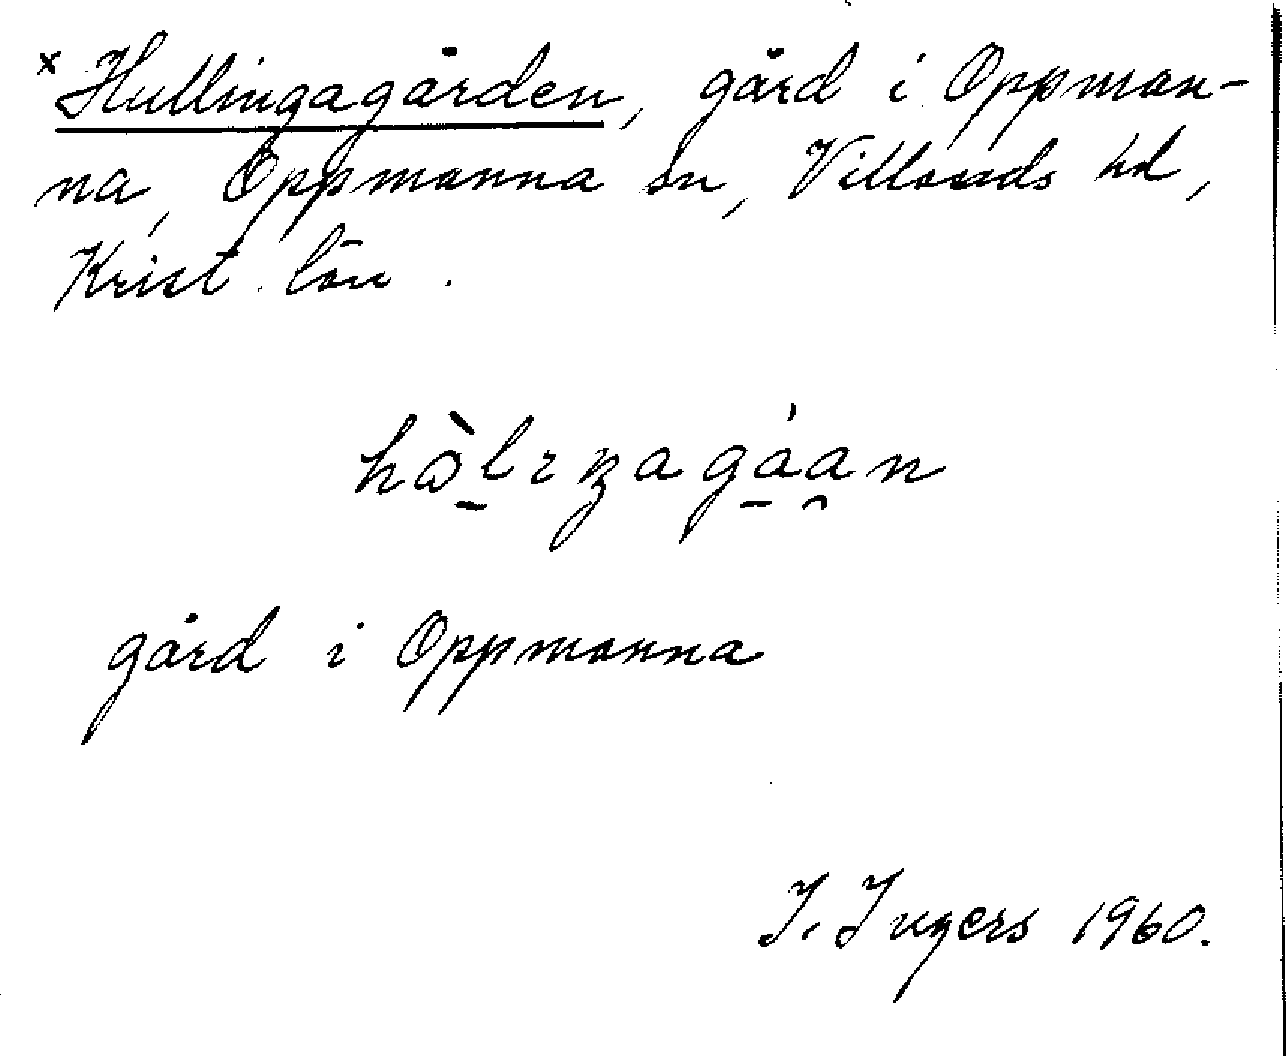 x Hullingagården, gård i Oppman-
na, Oppmanna sn, Villands hd,
Krist. län.
gård i Oppmanna
I. Ingers 1960.